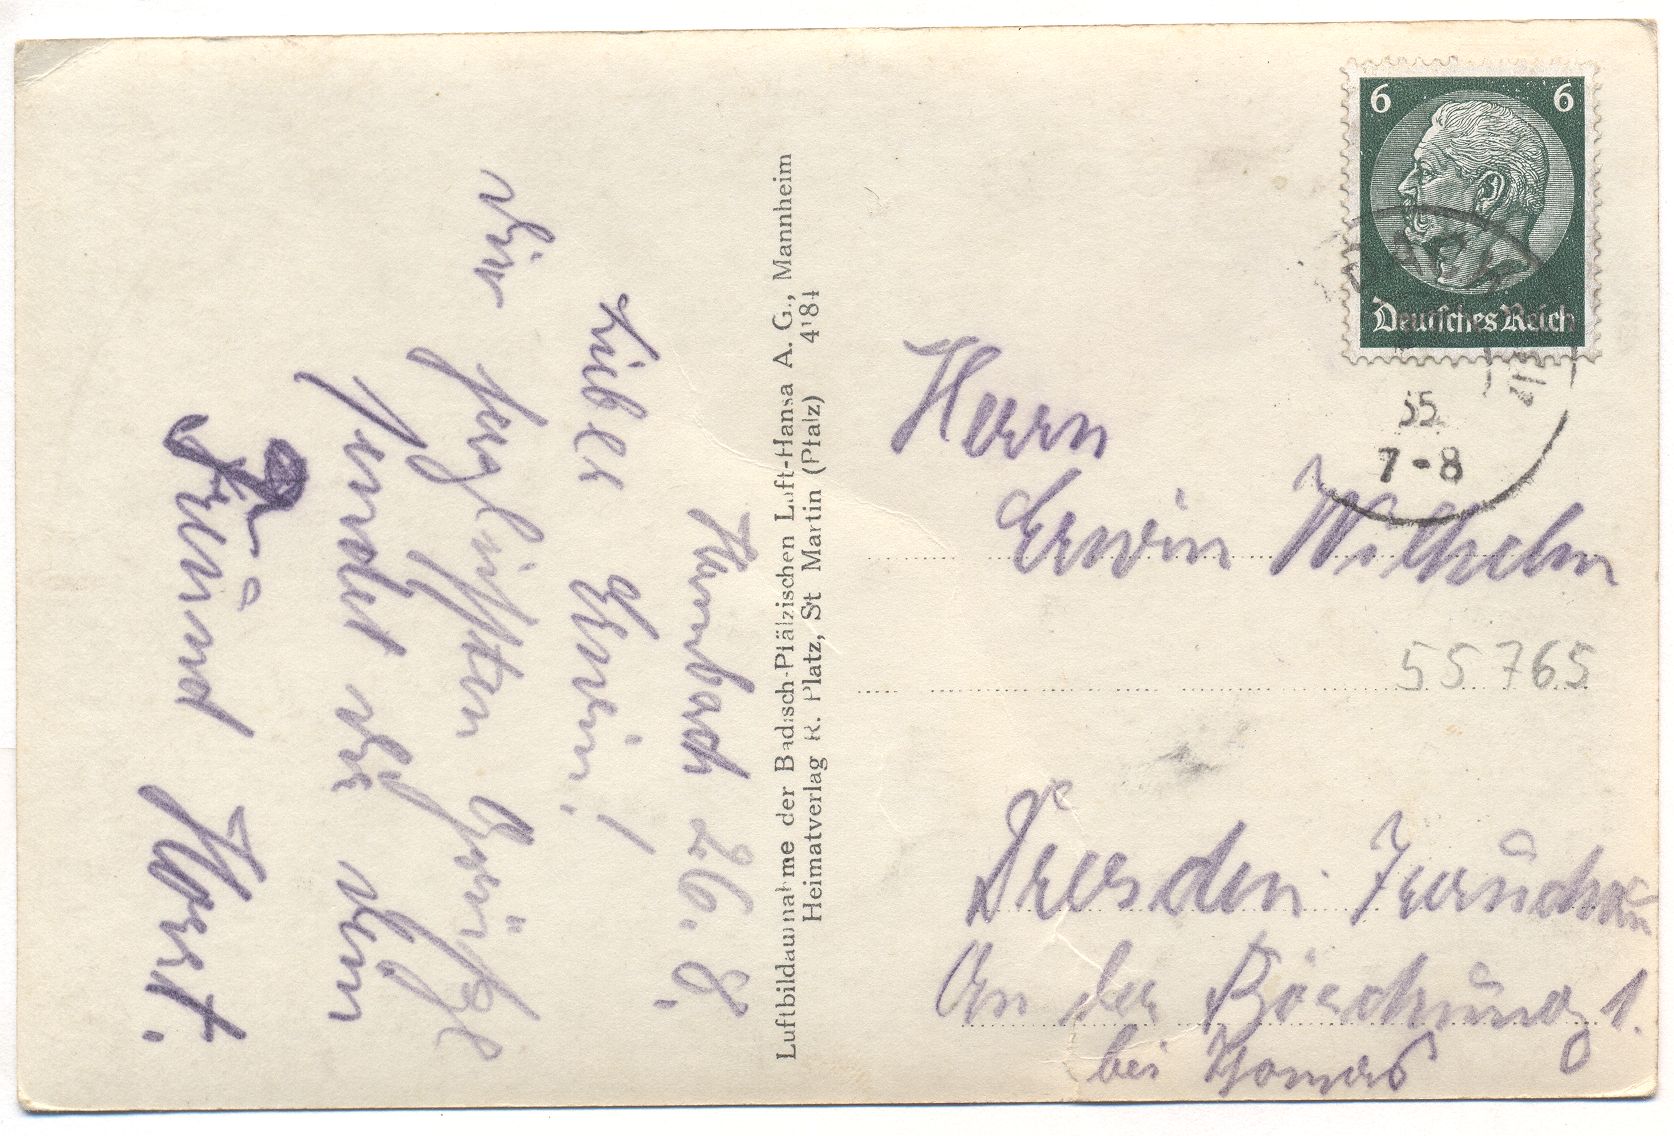 Hambach 26. 8.
Lieber Erwin!
Die herzlichsten Grüße
sendet dir dein
Freund Horst.
Luftbildaufnahme der Badisch-Pfälzischen Luft-Hansa A. G., Mannheim
Heimatverlag R. Platz, St Martin (Pfalz) 4184
6 6
Deutsches Reich
35
7-8
Herrn
Erwin Wilhelm
55765
Dresden
An der Böschung 1.
bei